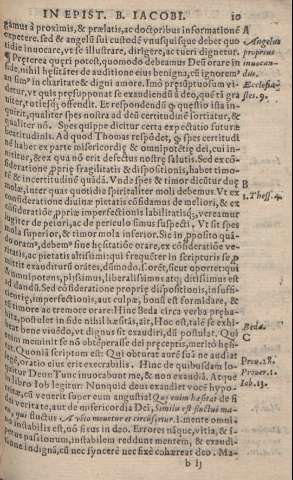 IN EPIST. B. IACOBI. 10
gamus à proximis, & prælatis, ac doctoribus informationē A
expetere. sed & angelū sui custodē vnusquisque debet quo Angelus
tidie inuocare, vt se illustrare, dirigere, ac tueri dignetur. proprius
¶ Præterea quęri potest, quomodo debeamus Deū orare in inuocan-
fide, nihil hęsitātes de auditione eius benigna, cū ignoremꝰ dus.
an simꝰ in charitate & digni amore. Imò præsūptuosum vi- Ecclesia-
detur, vt quis pręsupponat se exaudiendū à deo, que ē grā stes. 9.
titer, totiesq; offendit. Et respondendū questio ista in-
quirit, qualiter spes nostra ad deū certitudinē sortiatur, &
qualiter nō. Spes quippe dicitur certa expectatio futuræ
beatitudinis. Ad quod Thomas respōdet, spes certitudi
nē habet ex parte misericordię & omnipotētię dei, cui in-
nititur, & ex qua nō erit defectus nostrę salutis. Sed ex cō-
sideratiōe proprię fragilitatis & dispositionis, habet timo-
rē & incertitudinē quādā. Vnde spes & timor dicūtur duę B
molæ, inter quas quotidie spiritaliter moli debemus. Vt ex 1. Thess. 4.
consideratione diuinæ pietatis cōfidamus de meliori, & ex
consideratiōe, propriæ imperfectionis labilitatisq;, vereamur
iugiter de peiori, ac de periculo simus suspecti. Vt sit spes
mola superior, & timor mola inferior. Sic in proposito quā
do oramꝰ, debemꝰ sine hęsitatiōe orare, ex cōsideratiōe ve-
ritatis, ac pietatis altissimi: qui frequēter in scripturis se
mittit exauditurū orātes, dūmodo
& omnipotens, piissimus, liberalissimus atq; ditissimus est
ad dandū. Sed ex cōsideratione proprię dispositionis,
imperfectionis, aut culpæ, bonū est formidare, &
timore ac tremore orare: Hinc Beda circa verba præha-
bita, postulet in fide nihil hæsitās, ait, Hoc est, talē se exhi- Beda.
beat bene viuēdo, vt dignus sit exaudiri, dū postulat. Qui C
enim meminit se nō obtēperasse dei pręceptis, meritò
Quoniā scriptum est: Qui obturat aurē suā ne audiat Prou. 28.
legē, oratio eius erit execrabilis. Hinc de quibusdam Prouer. 1.
Deus: Tunc inuocabunt me, & non exaudiā. At Iob. 13.
in libro Iob legitur: Nunquid deus exaudiet vocē
cū venerit super eum angustia? Qui enim hęsitat de
veritate, aut de misericordia Dei, Similis est fluctui ma-
ris, qui fluctus A vēto mouetur et circūfertur. i. mente omni
no instabilis est, nō fixus in deo. Errores nāque, vitia, &
passionum, instabilem reddunt mentem, & exaudi-
tione indignā, cū nec syncerè nec fixè cohæreat deo. Ma-
b ij